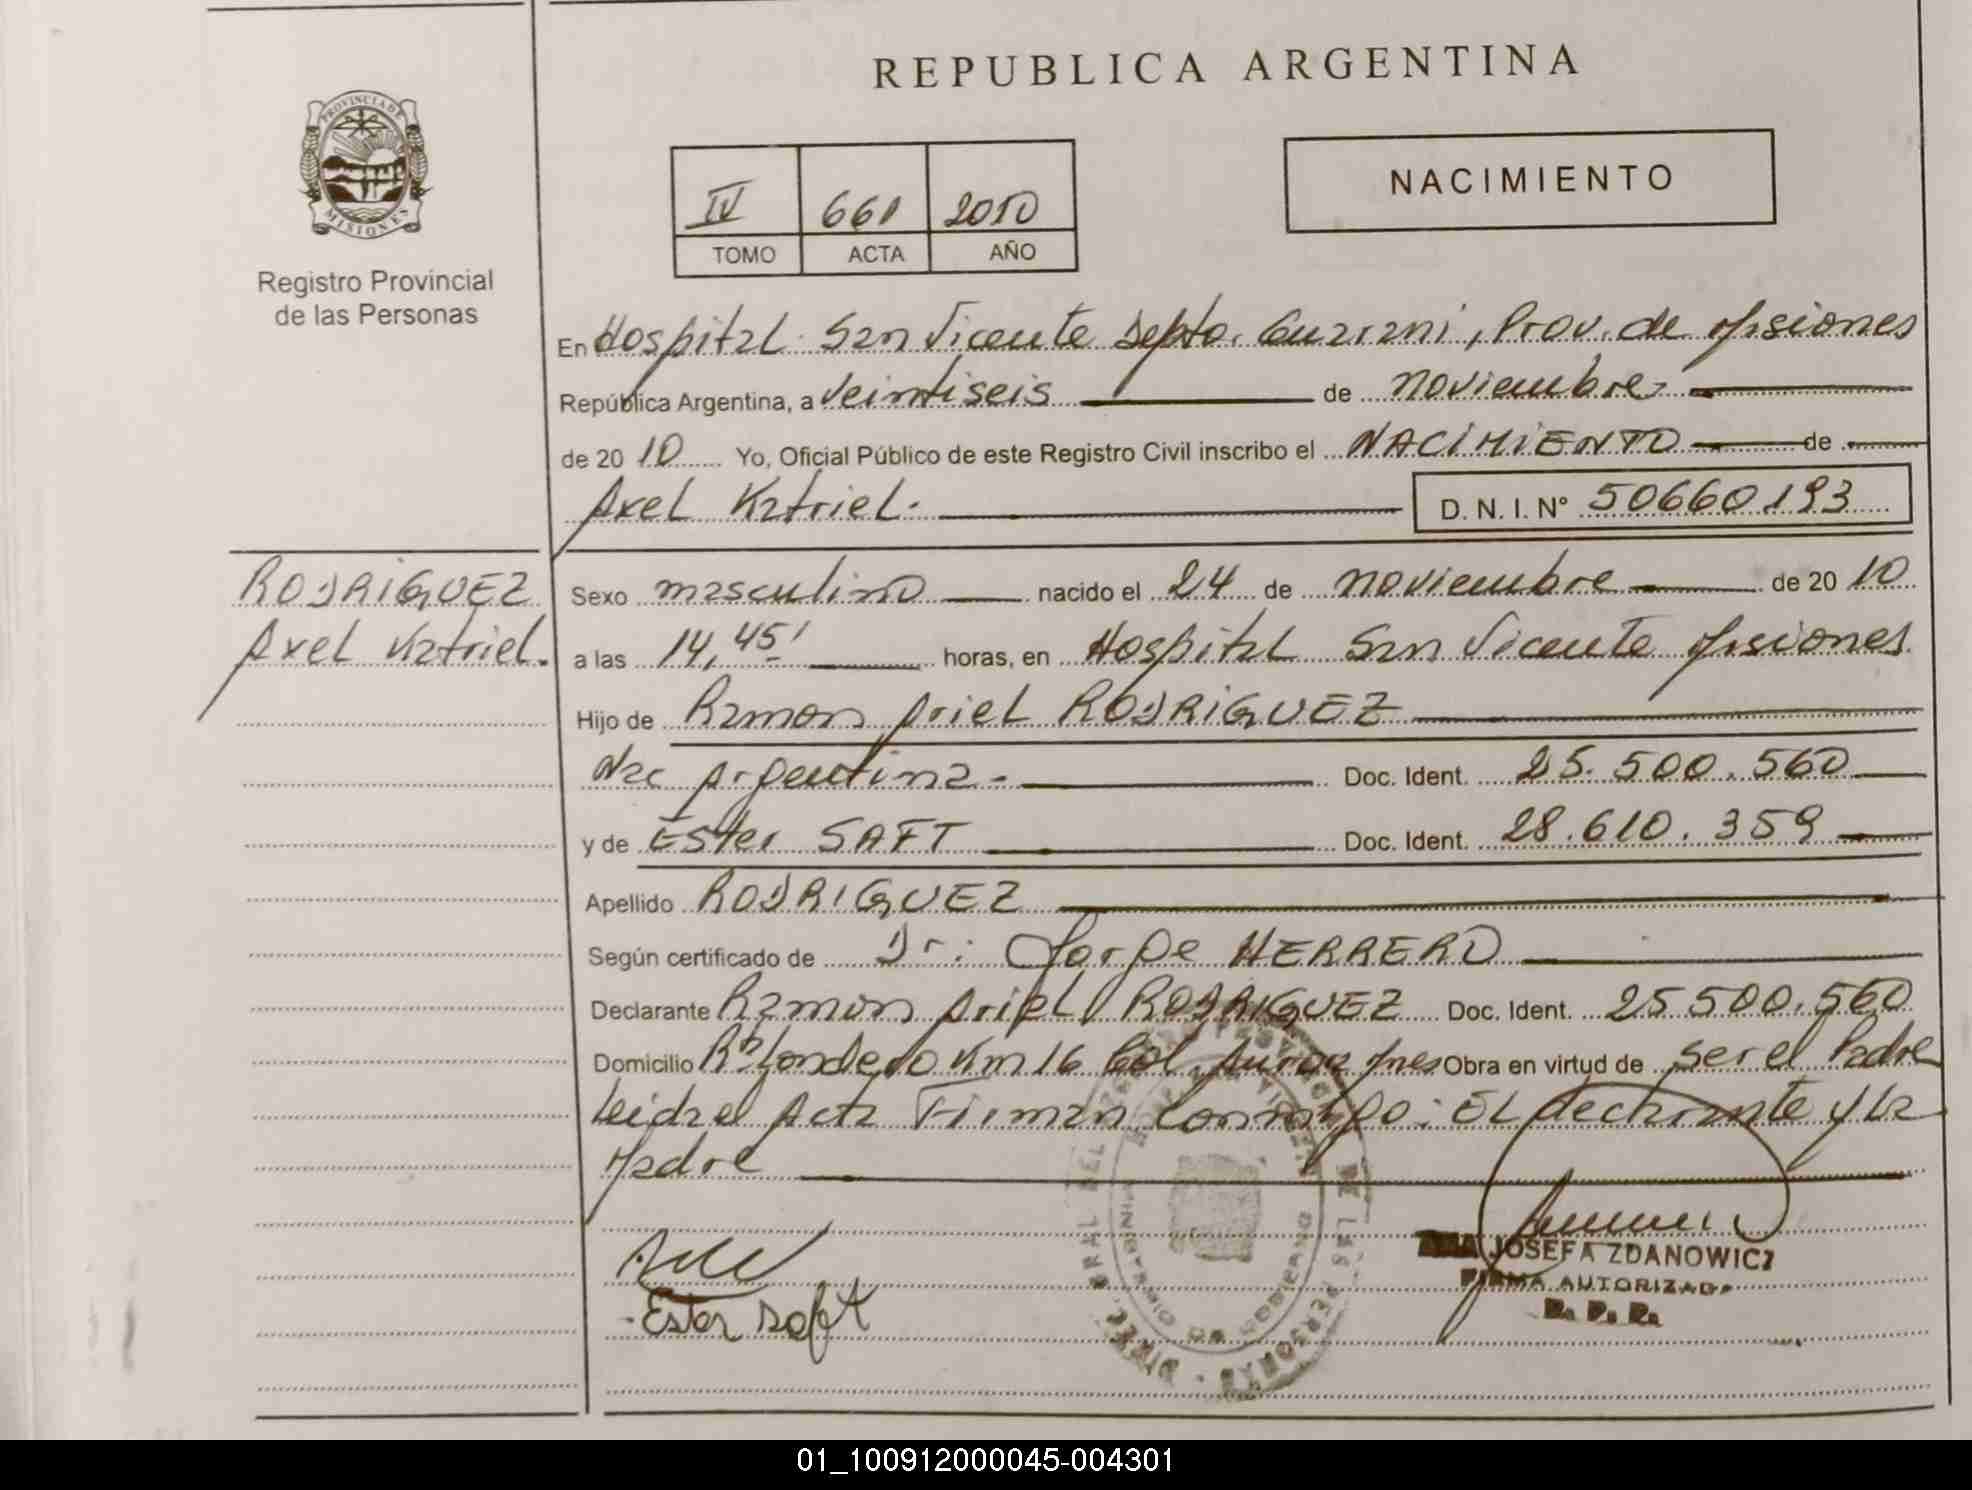 REPUBLICA ARGENTINA
PROVINCIA DE
MISIONES
Registro Provincial
de las Personas
IV 661 2010
TOMO ACTA AÑO
NACIMIENTO
En Hospital San Vicente Depto. Guarani, Prov. de Misiones
República Argentina, a veintiseis de noviembre
de 20 10 Yo, Oficial Público de este Registro Civil inscribo el NACIMIENTO de
Axel Katriel.
D. N. I. N° 50660193
RODRIGUEZ
Axel Katriel.
Sexo masculino nacido el 24 de noviembre de 20 10
a las 14,45' horas, en Hospital San Vicente Misiones
Hijo de Ramon Ariel RODRIGUEZ
Nac Argentina.- Doc. Ident. 25.500.560
y de Ester SAFT Doc. Ident. 28.610.359
Apellido RODRIGUEZ
Según certificado de Dr: Jorge HERRERO
Declarante Ramon Ariel RODRIGUEZ Doc. Ident. 25.500.560
Domicilio Km 16 Col. Aurora Mnes Obra en virtud de ser el Padre
Leida el Acta Firman conmigo: El declarante y la
Madre
JOSEFA ZDANOWICZ
FIRMA AUTORIZADA
R. P. P.
Ester Saft
01_100912000045-004301